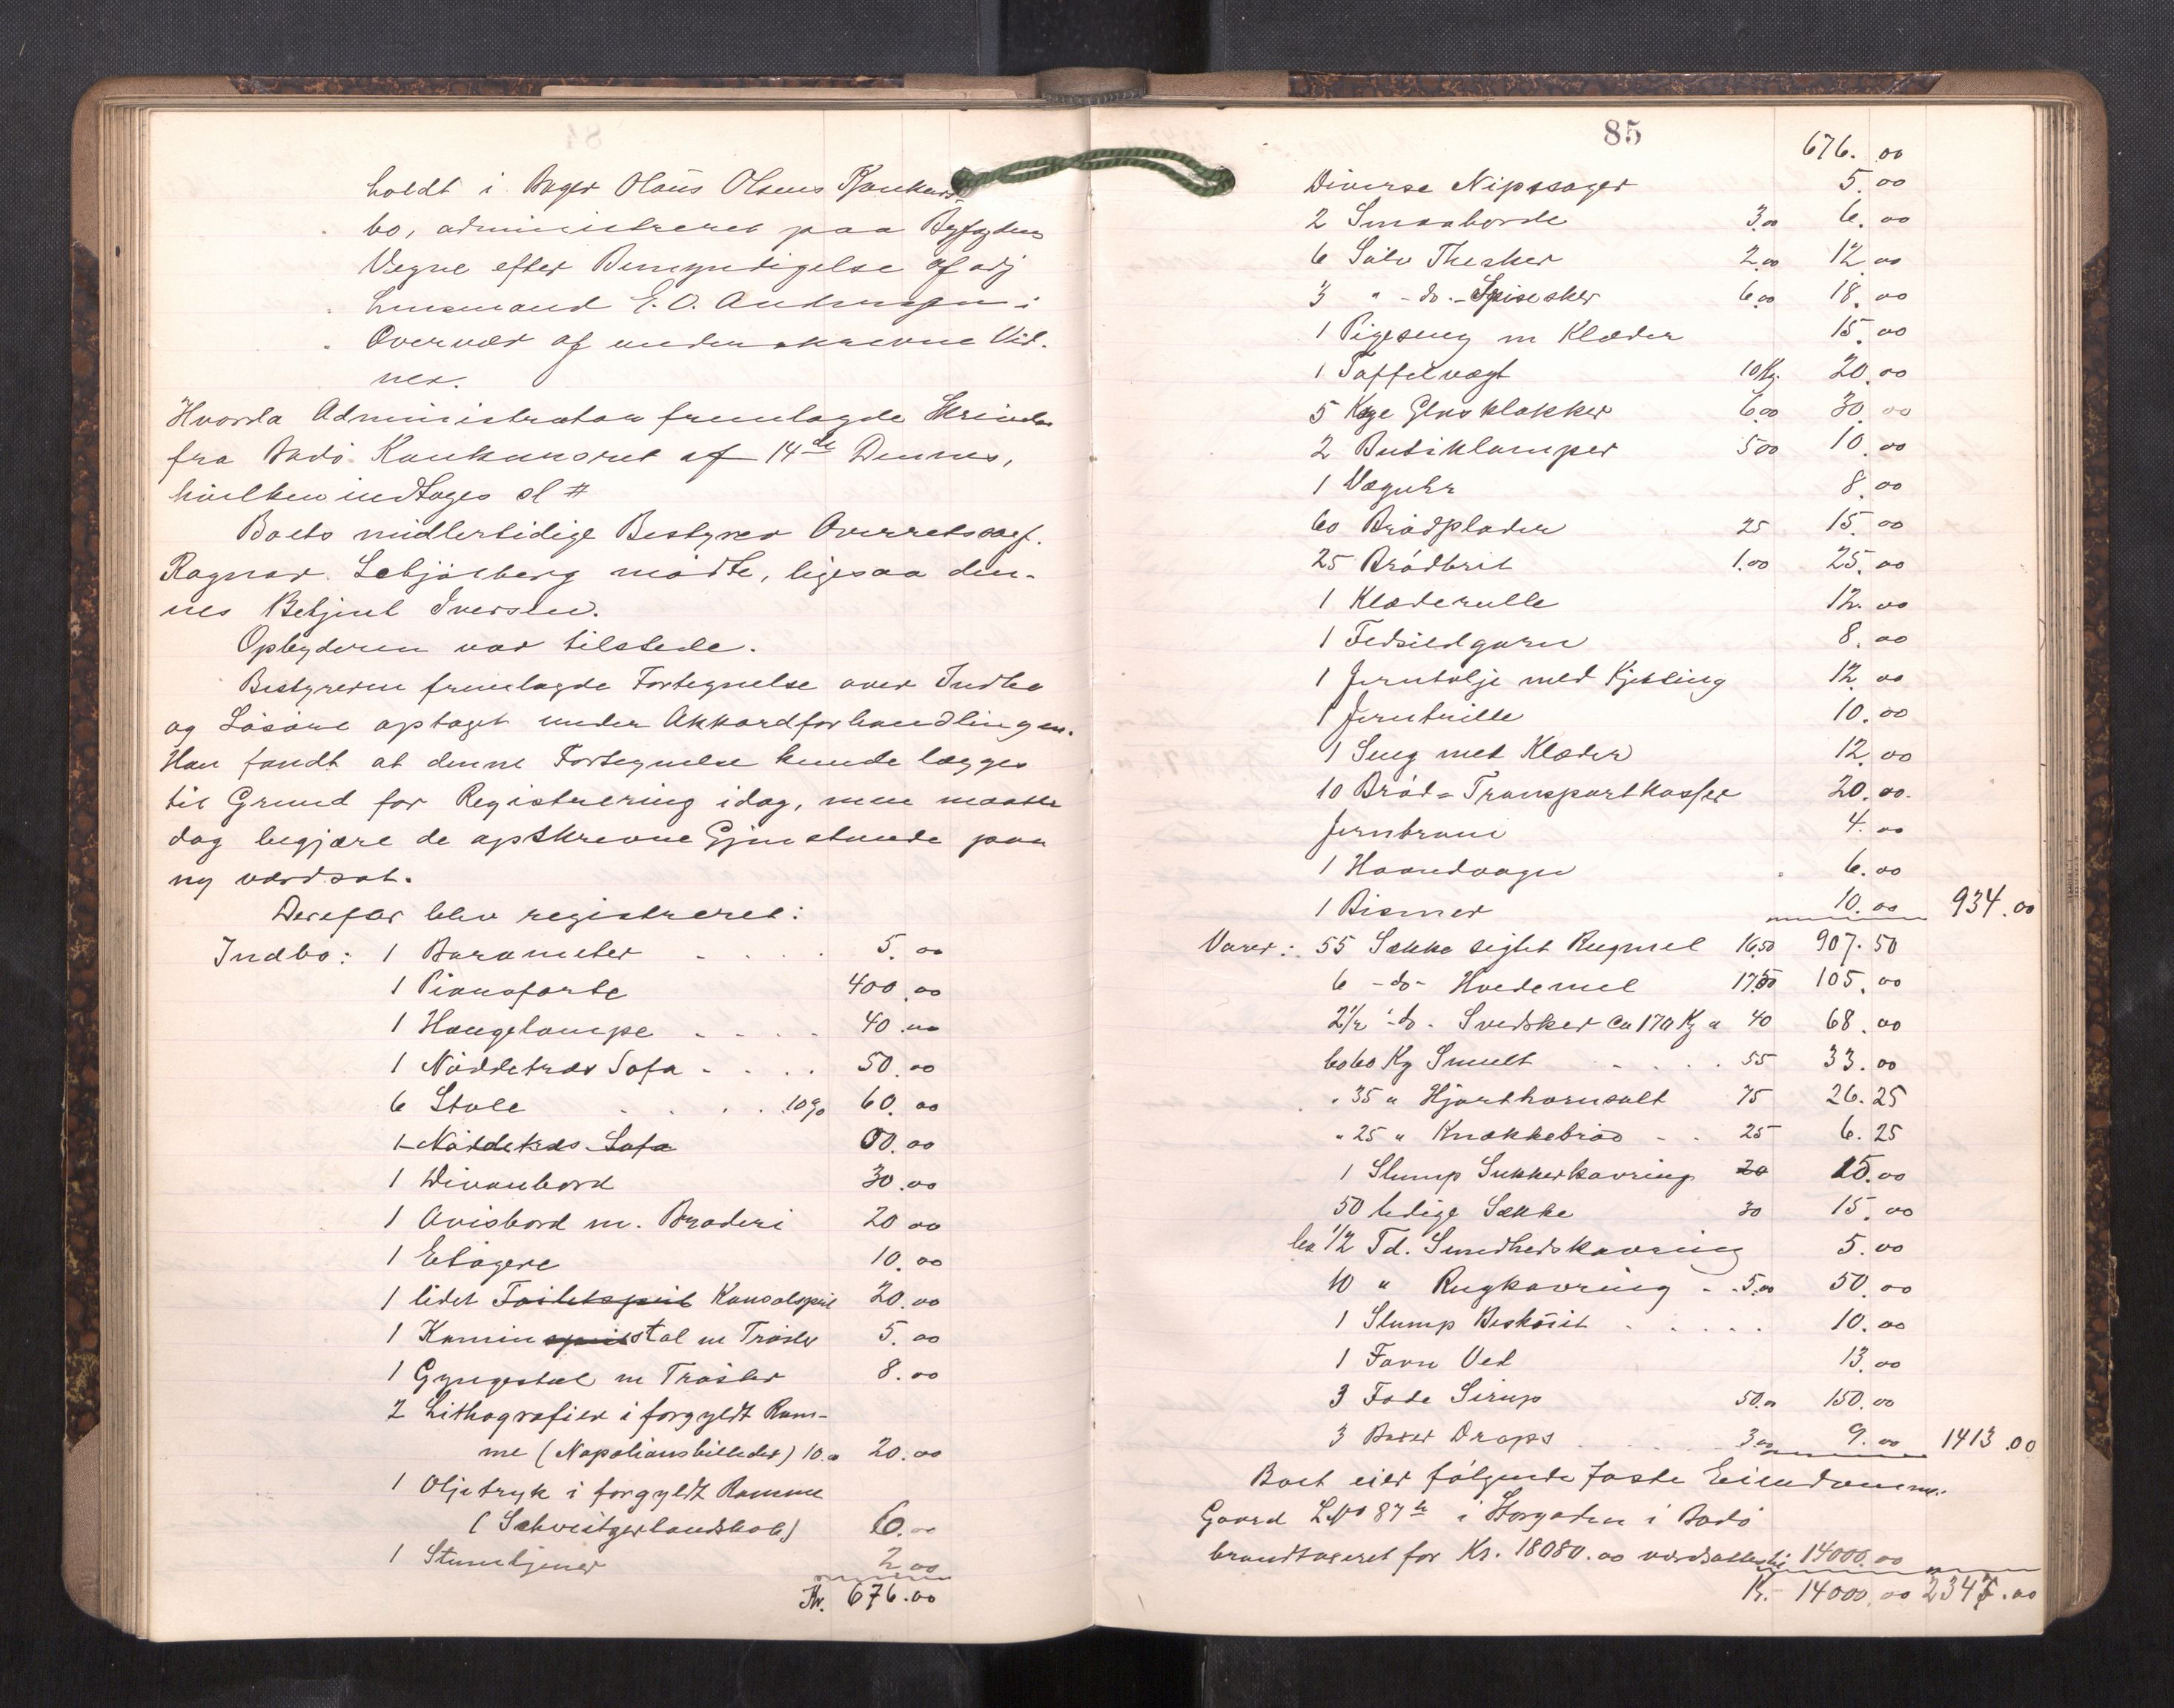 holdt i Bager Olaus Olsens Konkurs-
bo, administreret paa Byfogdens
Vegne efter Bemyndigelse af adj
Lensmand E. O. Andersen i
Overvær af underskrevne Vid-
ner.
Hvorda Administrator fremlagde Skrivelse
fra Bodø Konkursret af 14de Dennes,
hvilken indtages sl #
Boets midlertidige Bestyrer Overretssagf.
Ragnar Schjølberg mødte, ligesaa den-
nes Betjent Iversen.
Opbyderen var tilstede.
Bestyreren fremlagde Fortegnelse over Indbo
og Løsøre optaget under Akkordforhandlingen.
Han fandt at denne Fortegnelse kunde lægges
til Grund for Registrering idag, men maatte
dog begjære de opskrevne Gjenstande paa
ny værdsat.
Derefter blev registreret:
Indbo: 1 Barometer 5.00
1 Pianoforte 400.00
1 Hængelampe 40.00
1 Nøddetræs Sofa 50.00
6 Stole 10.00 60.00
1 Nøddetræs Sofa 00.00
1 Divanbord 30.00
1 Avisbord m. Broderi 20 00
1 Etagere 10.00
1 lidet Toiletspeil Konsolspeil 20.00
1 Kamin speil stol m Trøsler 5.00
1 Gyngestol m Trøsler 8.00
2 Lithografier i forgyldt Ram-
me (Napoliansbilleder) 10.00 20.00
1 Oljetryk i forgyldt Ramme
(Schveitzerlandskab) 6.00
1 Stumtjener 2.00
Kr. 676.00
85
676.00
Diverse Nipssager 5.00
2 Smaaborde 3.00 6.00
6 Sølv Theskeer 2.00 12.00
3 " -do.- Spiseskeer 6.00 18.00
1 Pigeseng m Klæder 15.00
1 Taffelvægt 10 Kg. 20.00
5 Kage Glasklokker 6.00 30.00
2 Butiklamper 5.00 10.00
1 Væguhr 8.00
60 Brødplader 25 15.00
25 Brødbret 1.00 25.00
1 Klæderulle 12.00
1 Fedsildgarn 8.00
1 Jernbolje med Kjetting 12.00
1 Jerntrille 10.00
1 Seng med Klæder 12.00
10 Brød-Transportkasser 20.00
Jernbrune 4.00
1 Haandvogn 6.00
1 Bismer 10.00 934.00
Varer: 55 Sække sigtet Rugmel 16.50 907.50
6 -do- Hvedemel 17.50 105.00
2½ -do- Svedsker Ca 170 Kg a 40 68.00
60 Kg Smult 55 33.00
" 35 " Hjorthornsalt 75 26.25
" 25 " Knækkebrød 25 6.25
1 Slump Sukkerkavring 20 15.00
50 ledige Sække 30 15.00
Ca ½ Td. Sundhedskavring 5.00
10 " Rugkavring 5.00 50.00
1 Slump Beskøit 10.00
1 Favn Ved 13.00
3 Fade Sirup 50.00 150.00
3 Boxer Drops 3.00 9.00 1413.00
Boet eier følgende faste Eiendomme:
Gaard L.No 87b i Storgaden i Bodø
brandtaxeret for Kr. 18080.00 værdsattes til 14000.00
Kr. 14000.00 2347.00